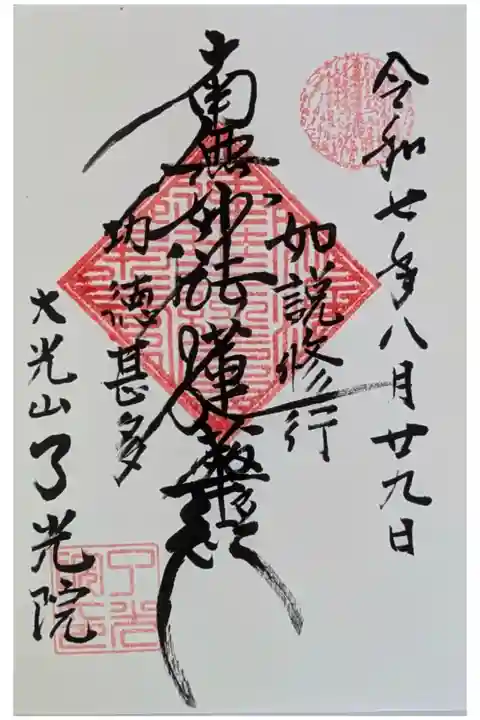 令和七年八月廿九日
如説修行
南無妙法蓮華経
功徳甚多
大光山了光院